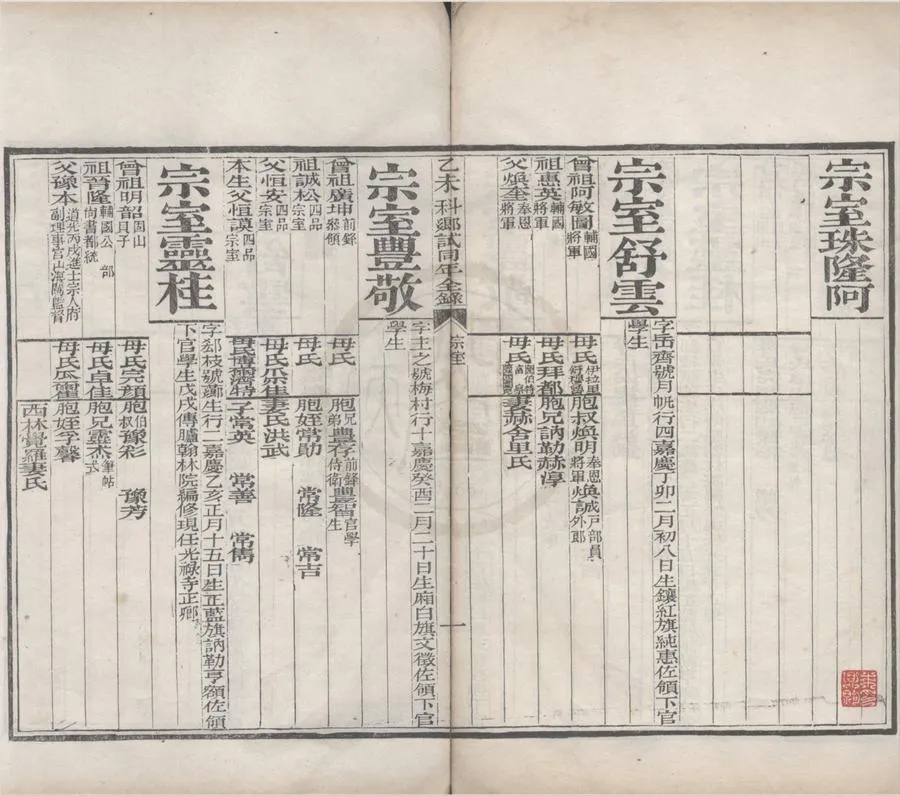 宗室珠隆阿
宗室舒雲
字岳齋號月帆行四嘉慶丁卯二月初八日生鑲紅旗純惠佐領下官
學生
曾祖阿敏圖輔國將軍
祖惠英輔國將軍
父煥奎奉恩將軍
母氏伊拉里舒穆魯
胞叔煥明奉恩將軍 煥誠戶部員外郎
母氏拜都
胞兄訥勒赫淳
母氏
妻赫舍里氏
乙未科鄉試同年全錄
宗室
一
宗室豐敬
字主之號梅村行十嘉慶癸酉二月二十日生廂白旗文徵佐領下官
學生
曾祖廣坤前鋒參領
祖誠松四品宗室
父恒安四品宗室
本生父恒謨四品宗室
母氏
胞兄弟豐存前鋒侍衛 豐智官學生
母氏
胞姪常勛 常隆 常吉
母氏瓜佳
妻氏洪武
母氏博爾濟特
子常英 常善 常雋
宗室靈桂
字郄枝號薌生行二嘉慶乙亥正月十五日生正藍旗訥勒亨額佐領
下官學生戊戌傳臚翰林院編修現任光祿寺正卿
曾祖明韶固山貝子
祖晉隆輔國公 部尚書都統
父豫本道光丙戌進士宗人府副理事官山海關監督
母氏完顏
胞伯叔豫彩 豫芳
母氏卓佳
胞兄靈杰筆帖式
母氏瓜爾
胞姪孚馨
西林覺羅妻氏